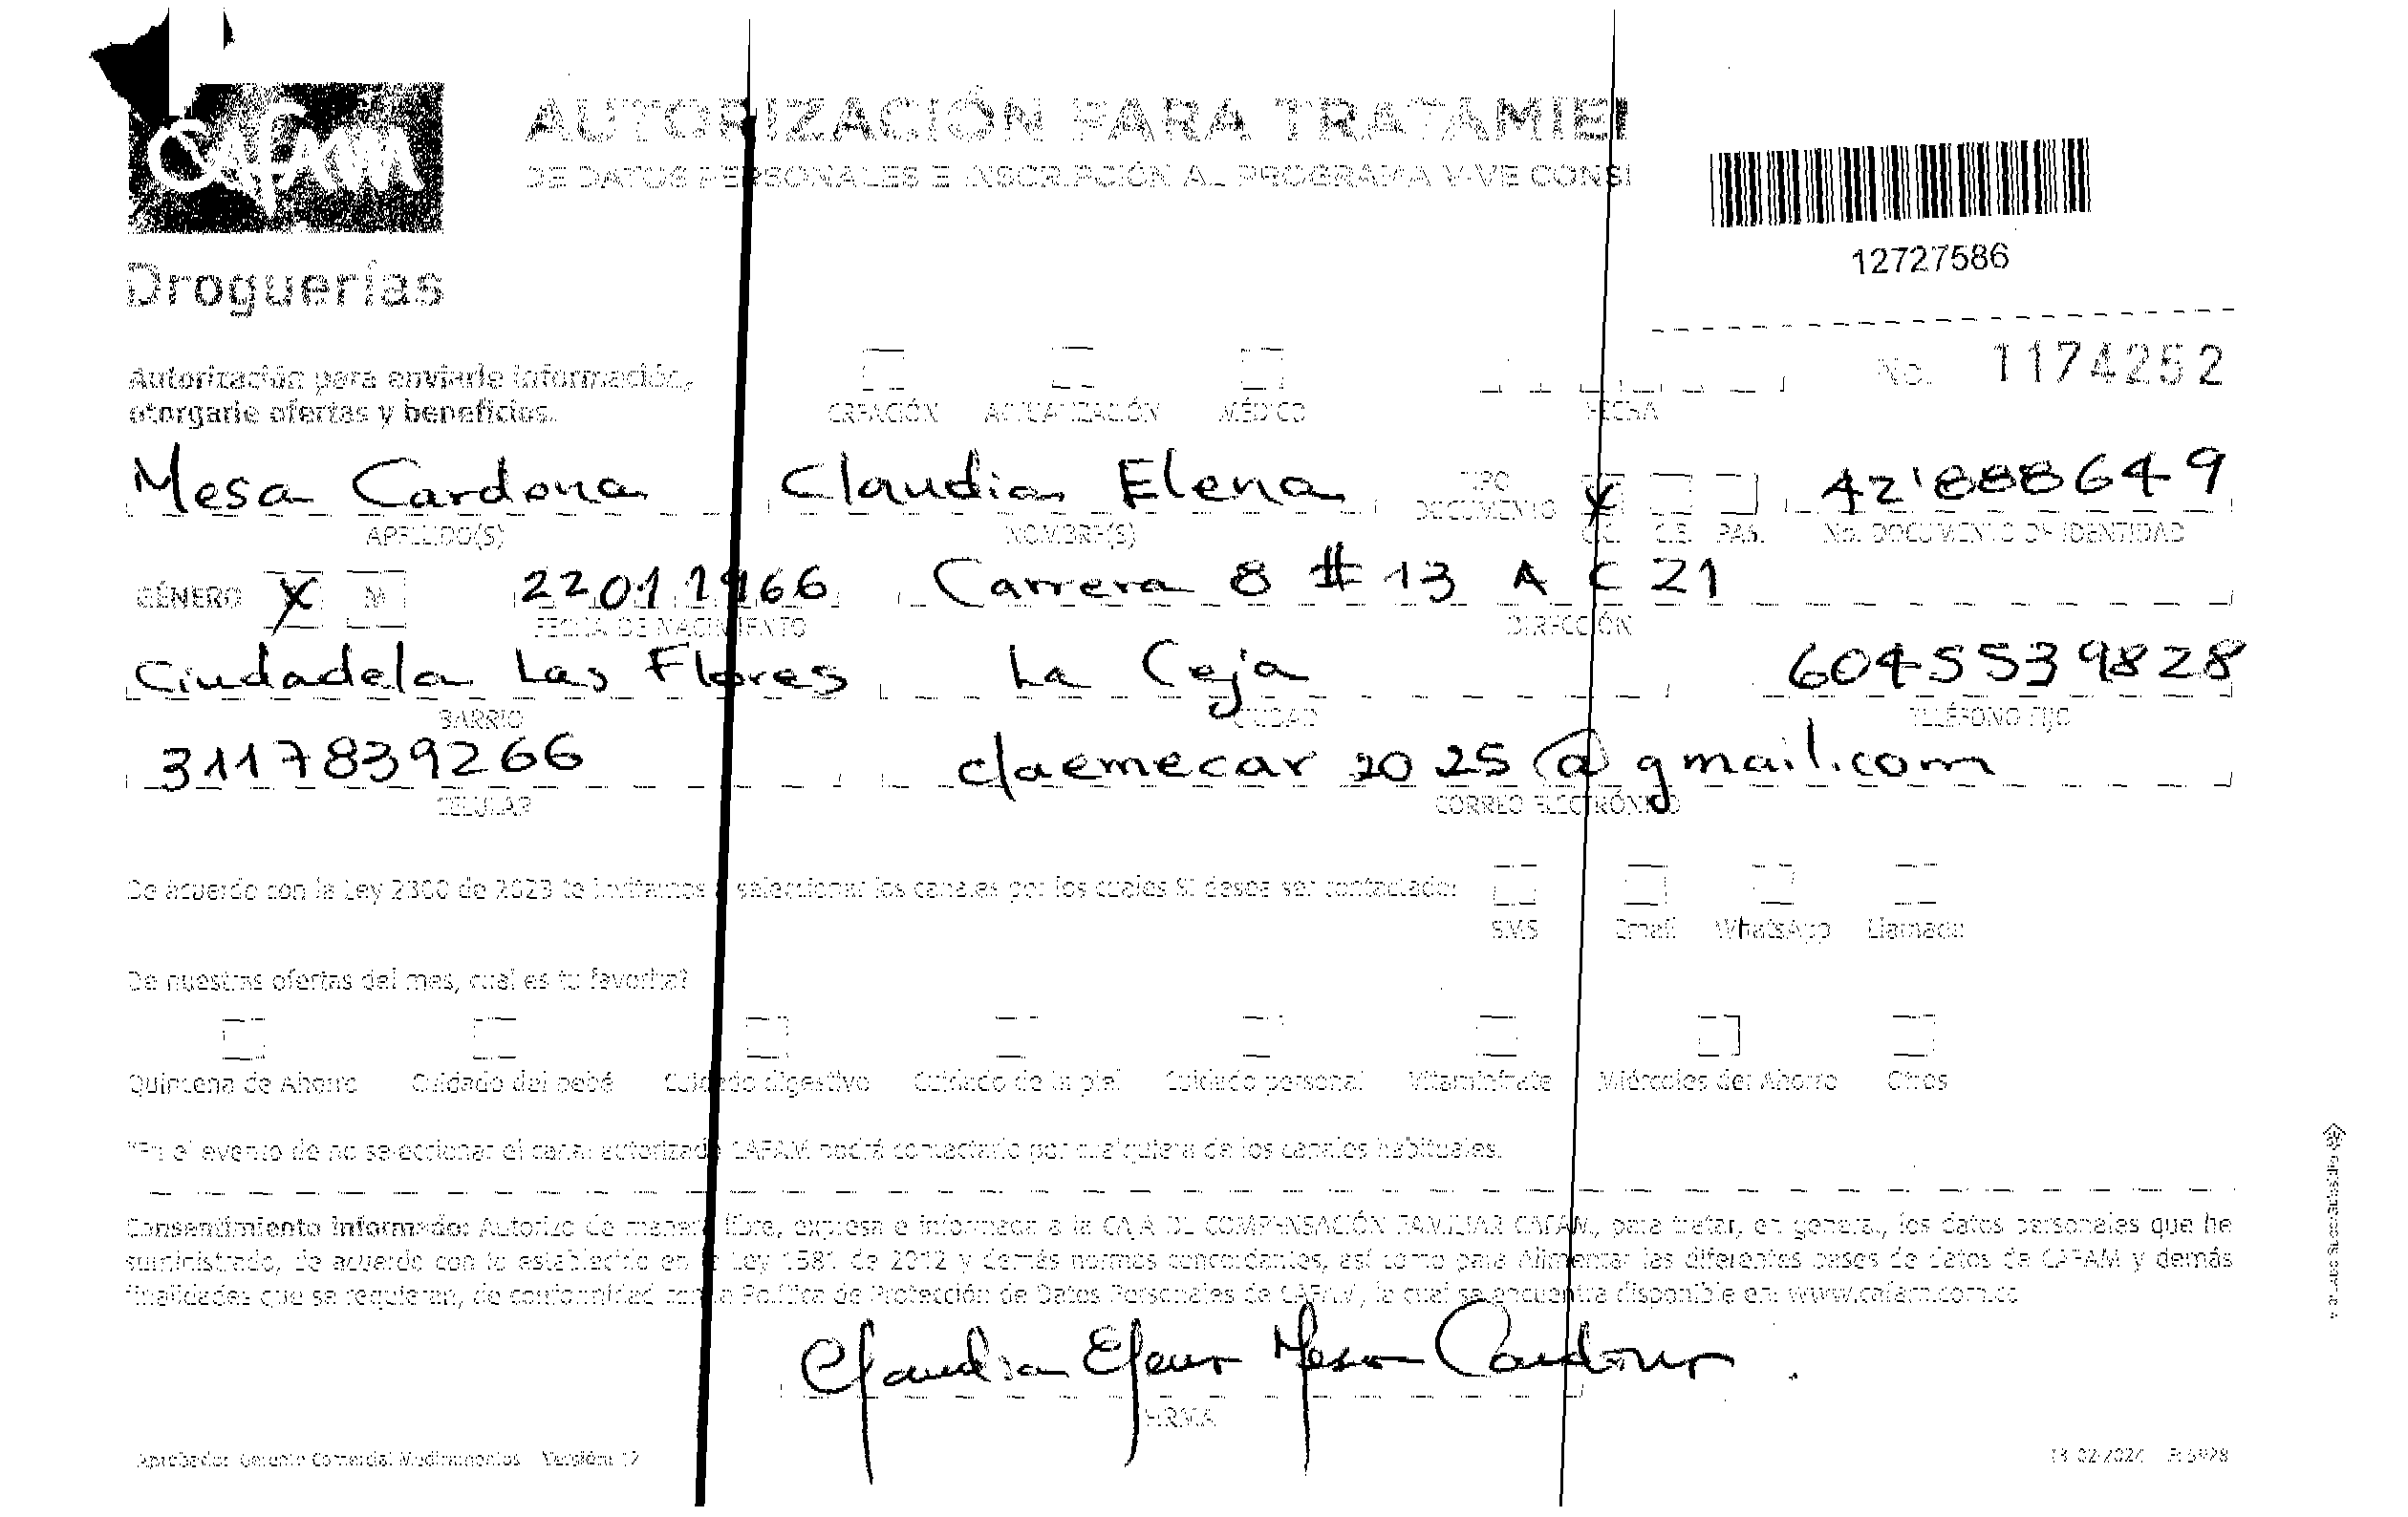 Cafam
Droguerías
AUTORIZACIÓN PARA TRATAMIE
DE DATOS PERSONALES E INSCRIPCIÓN AL PROGRAMA VIVE CONS
12727586
No. 1174252
Autorización para enviarle información,
otorgarle ofertas y beneficios.
CREACIÓN ACTUALIZACIÓN MÉDICO FECHA
Mesa Cardona Claudia Elena X 42'888649
APELLIDO(S) NOMBRE(S) TIPO DOCUMENTO C.C. C.E. PAS. No. DOCUMENTO DE IDENTIDAD
GÉNERO X M 22011966 Carrera 8 # 13 A C 21
FECHA DE NACIMIENTO DIRECCIÓN
Ciudadela Las Flores La Ceja 6045539828
BARRIO CIUDAD TELÉFONO FIJO
3117839266 claemecar2025@gmail.com
CELULAR CORREO ELECTRÓNICO
De acuerdo con la Ley 2300 de 2023 te invitamos a seleccionar los canales por los cuales SI desea ser contactado:
SMS Email WhatsApp Llamada
De nuestras ofertas del mes, cual es tu favorita?
Quincena de Ahorro Cuidado del bebé Cuidado digestivo Cuidado de la piel Cuidado personal Vitamínfrate Miércoles del Ahorro Otros
*En el evento de no seleccionar el canal autorizado CAFAM podrá contactarlo por cualquiera de los canales habituales.
Consentimiento informado: Autorizo de manera libre, expresa e informada a la CAJA DE COMPENSACIÓN FAMILIAR CAFAM, para tratar, en general, los datos personales que he
suministrado, de acuerdo con lo establecido en la Ley 1581 de 2012 y demás normas concordantes, así como para Alimentar las diferentes bases de datos de CAFAM y demás
finalidades que se requieran, de conformidad con la Política de Protección de Datos Personales de CAFAM, la cual se encuentra disponible en: www.cafam.com.co
Claudia Elena Mesa Cardona.
FIRMA
Aprobador: Gerente Comercial Medicamentos Versión: 12